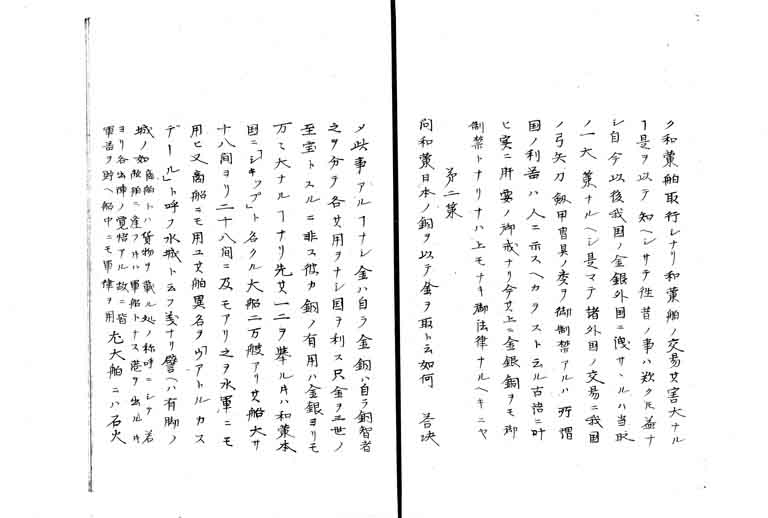 ク和蘭舶取行レナリ和蘭舶ノ交易其害大ナル
ヿ是ヲ以テ知ヘシサテ徃昔ノ事ハ歎クモ益ナ
シ自今以後我国ノ金銀外国ニ洩サヽルハ当時
ノ一大策ナルヘシ是マテ諸外国ノ交易ニ我国
ノ弓矢刀劔甲冑具ノ委ヲ御制禁アルハ所謂
国ノ利器ハ人ニ示スヘカラスト云ル古語ニ叶
ヒ実ニ肝要ノ御戒ナリ今其上ニ金銀銅ヲモ御
制禁トナリナハ上モナキ御法律ナルヘキニヤ
第二策
問和蘭日本ノ銅ヲ以テ金ヲ取ト云如何 答決
メ此事アルヿナシ金ハ自ラ金銅ハ自ラ銅智者
之ヲ分テ各其用ヲナシ国ヲ利ス只金ヲ世ノ
至宝トスルニ非ス彼カ銅ノ有用ハ金銀ヨリモ
万々大ナルヿナリ先其一二ヲ挙ルニハ和蘭本
国ニ「シキップ」ト名クル大船二万艘アリ其船大サ
十八间ヨリ二十八间ニ及モアリ之ヲ水軍ニモ
用ヒ又商船ニモ用ユ其舶異名ヲ「ワアトルカス
デール」ト呼フ水城ト云フ義ナリ譬ヘハ有脚ノ
城ノ如 商舶トハ貨物ヲ載ル処ノ称呼ニシテ若
敵舶ニ逢フトキハ軍船トナス港ヲ出ル片
ヨリ各出陣ノ覚悟アル故ニ皆
軍器ヲ貯ヘ船中ニモ軍律ヲ用 尤大舶ニハ石火